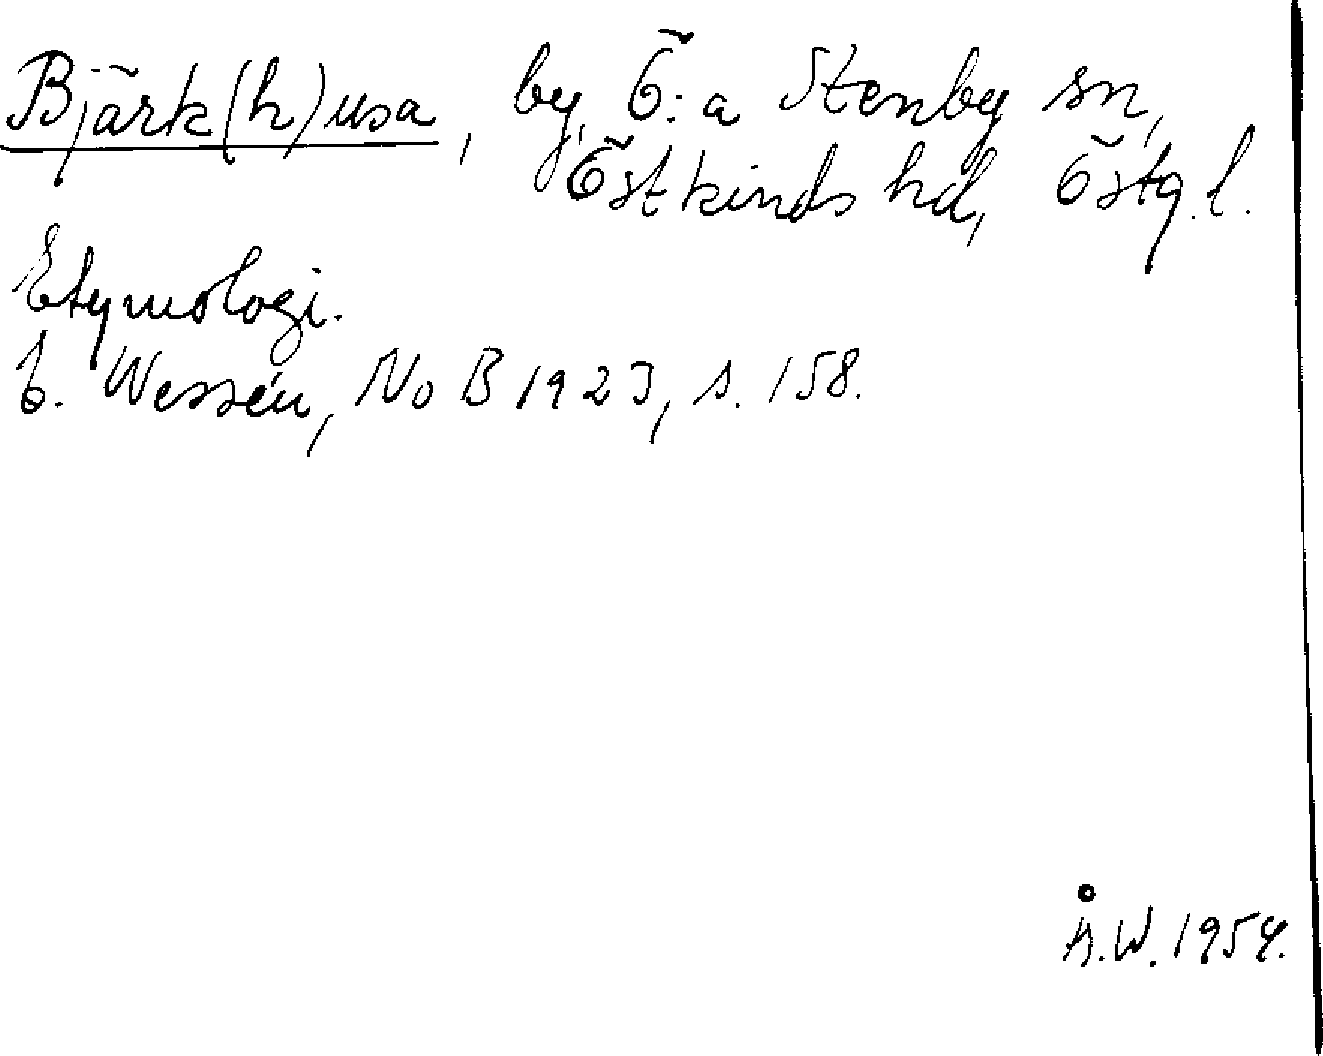 Bjärk(h)usa, by, Ö:a Stenby sn,
Östkinds hd, Östg.l.
Etymologi.
E. Wessén, NoB 1923, s. 158.
Å.W. 1954.